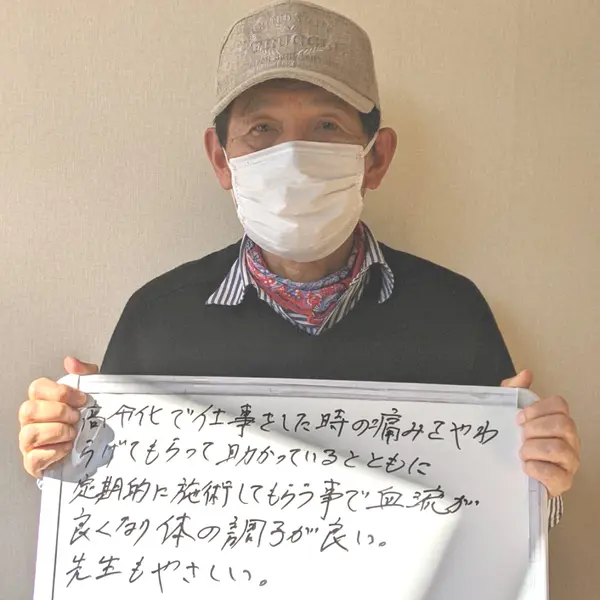 高令化で仕事をした時の痛みをやわ
らげてもらって助かっているとともに
定期的に施術してもらう事で血流が
良くなり体の調子が良い。
先生もやさしい。